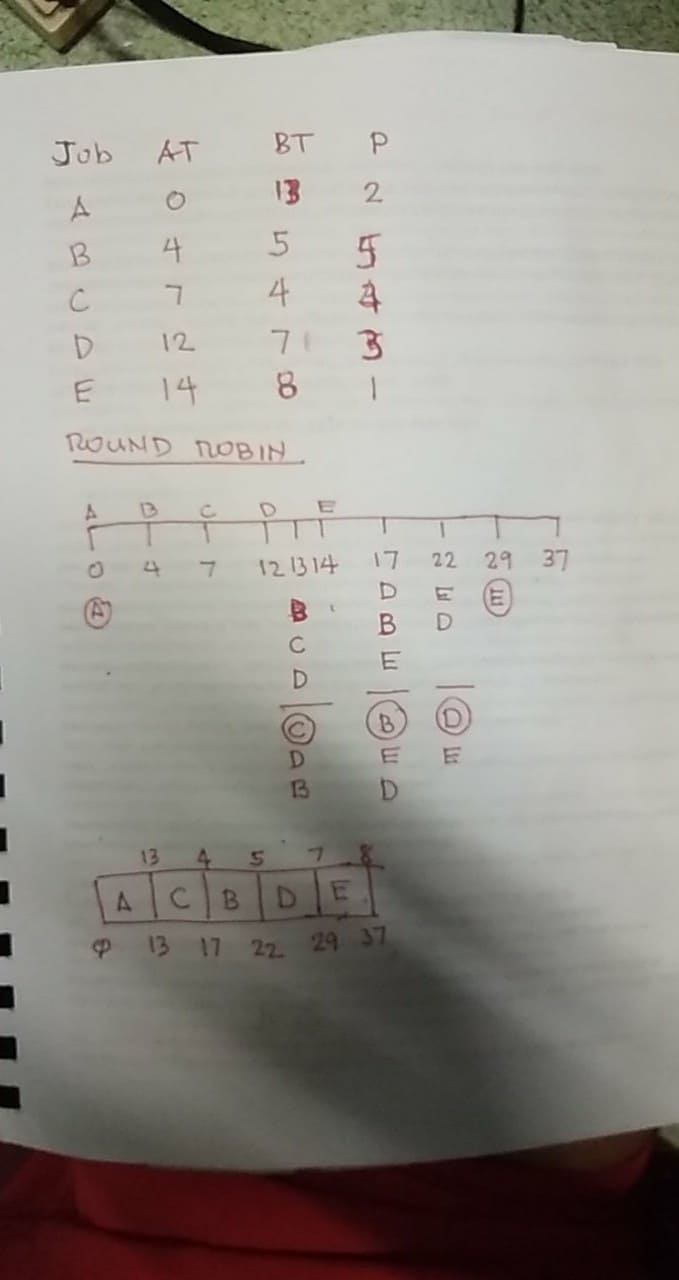 Job AT BT P
A 0 13 2
B 4 5 5
C 7 4 4
D 12 7 3
E 14 8 1
ROUND ROBIN
A B C D E
0 4 7 12 13 14 17 22 29 37
A B D E E
C B D
D E
C B D
D E E
B D
13 4 5 7 8
A C B D E
0 13 17 22 29 37